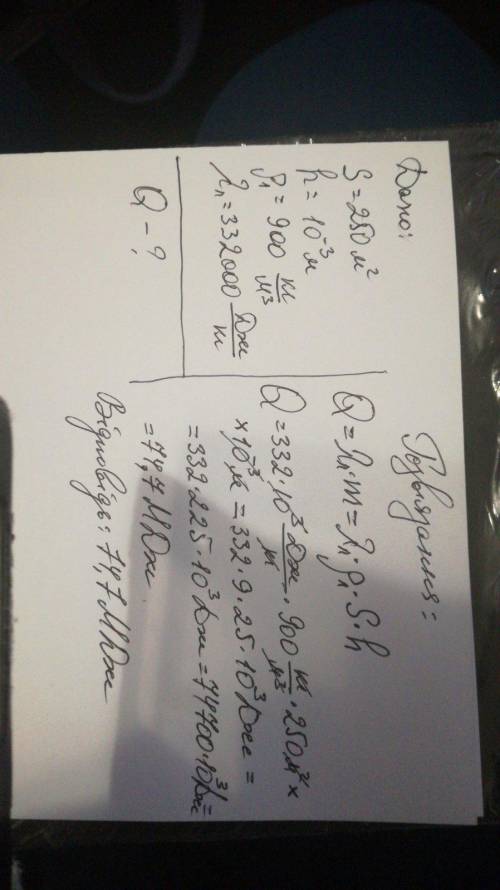 Дано:
S = 250 м²
h = 10⁻³ м
ρ₁ = 900 кг/м³
λ₁ = 332000 Дж/кг
Q - ?
Розв'язання:
Q = λ₁·m = λ₁·ρ₁·S·h
Q = 332·10³ Дж/кг · 900 кг/м³ · 250 м² ×
× 10⁻³ м = 332·9·25·10³ Дж =
= 332·225·10³ Дж = 74700·10³ Дж =
= 74,7 МДж.
Відповідь: 74,7 МДж